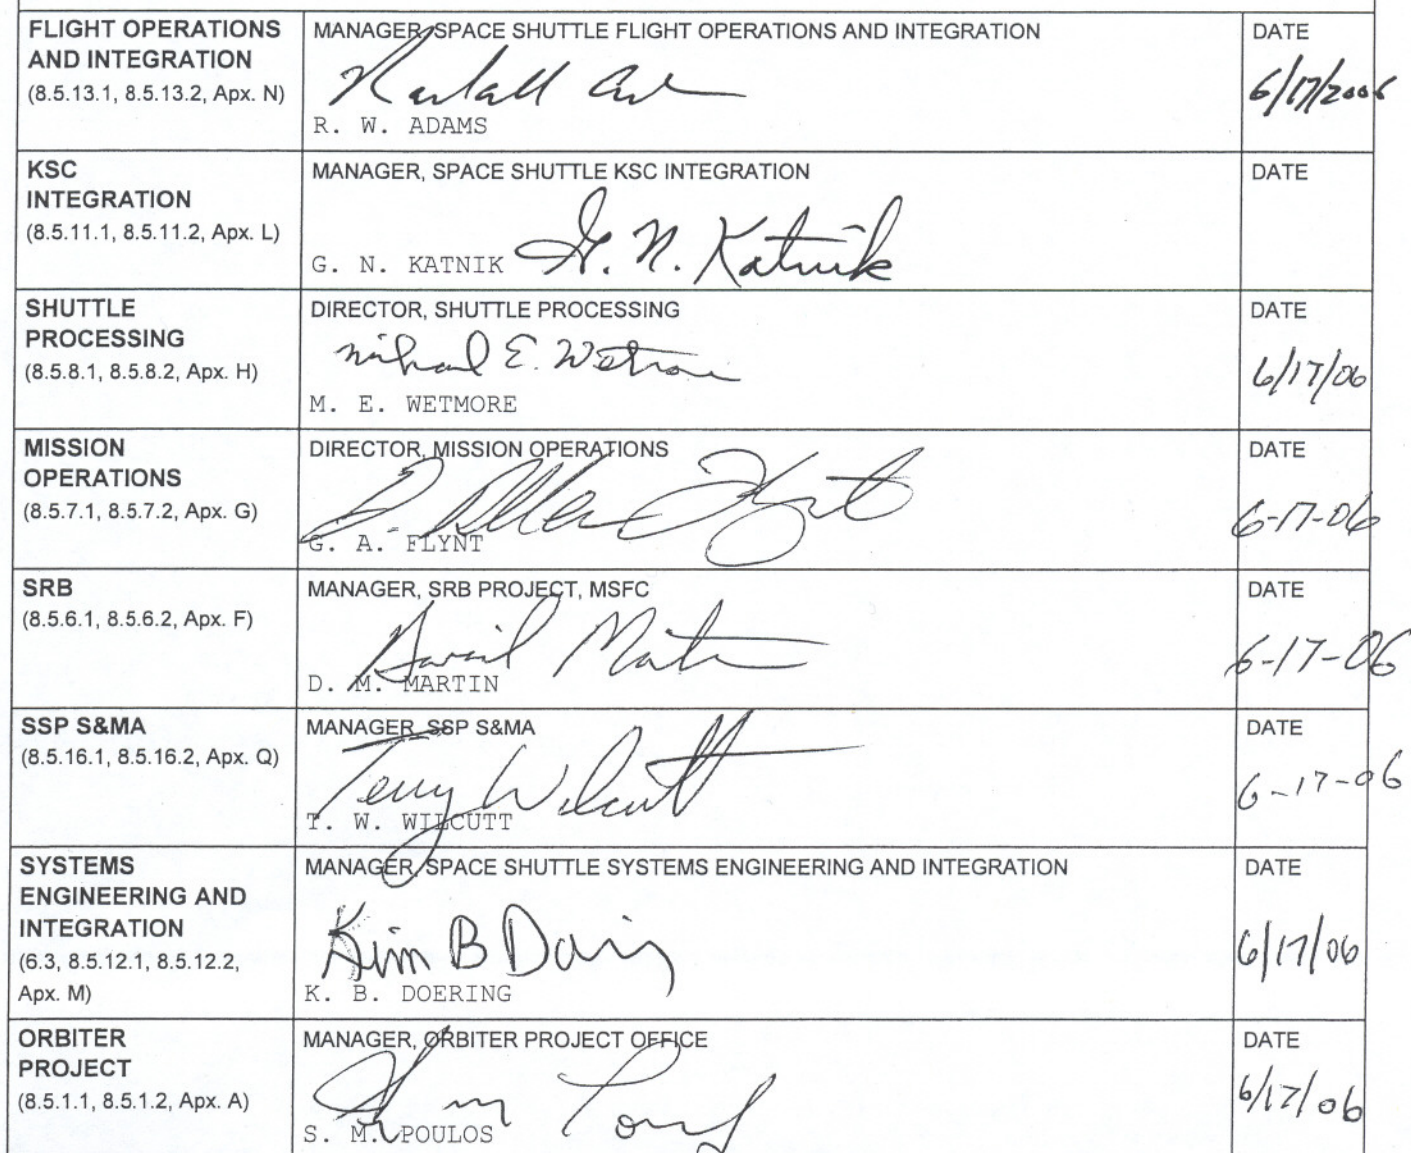 FLIGHT OPERATIONS
AND INTEGRATION
(8.5.13.1, 8.5.13.2, Apx. N)
MANAGER, SPACE SHUTTLE FLIGHT OPERATIONS AND INTEGRATION
R. W. ADAMS
DATE
6/17/2006
KSC
INTEGRATION
(8.5.11.1, 8.5.11.2, Apx. L)
MANAGER, SPACE SHUTTLE KSC INTEGRATION
G. N. KATNIK G. N. Katnik
DATE
SHUTTLE
PROCESSING
(8.5.8.1, 8.5.8.2, Apx. H)
DIRECTOR, SHUTTLE PROCESSING
Michael E. Wetmore
M. E. WETMORE
DATE
6/17/06
MISSION
OPERATIONS
(8.5.7.1, 8.5.7.2, Apx. G)
DIRECTOR, MISSION OPERATIONS
G. Allen Flynt
G. A. FLYNT
DATE
6-17-06
SRB
(8.5.6.1, 8.5.6.2, Apx. F)
MANAGER, SRB PROJECT, MSFC
David Martin
D. M. MARTIN
DATE
6-17-06
SSP S&MA
(8.5.16.1, 8.5.16.2, Apx. Q)
MANAGER, SSP S&MA
Terry Wilcutt
T. W. WILCUTT
DATE
6-17-06
SYSTEMS
ENGINEERING AND
INTEGRATION
(6.3, 8.5.12.1, 8.5.12.2,
Apx. M)
MANAGER, SPACE SHUTTLE SYSTEMS ENGINEERING AND INTEGRATION
Kim B Doering
K. B. DOERING
DATE
6/17/06
ORBITER
PROJECT
(8.5.1.1, 8.5.1.2, Apx. A)
MANAGER, ORBITER PROJECT OFFICE
S. M. POULOS
DATE
6/17/06